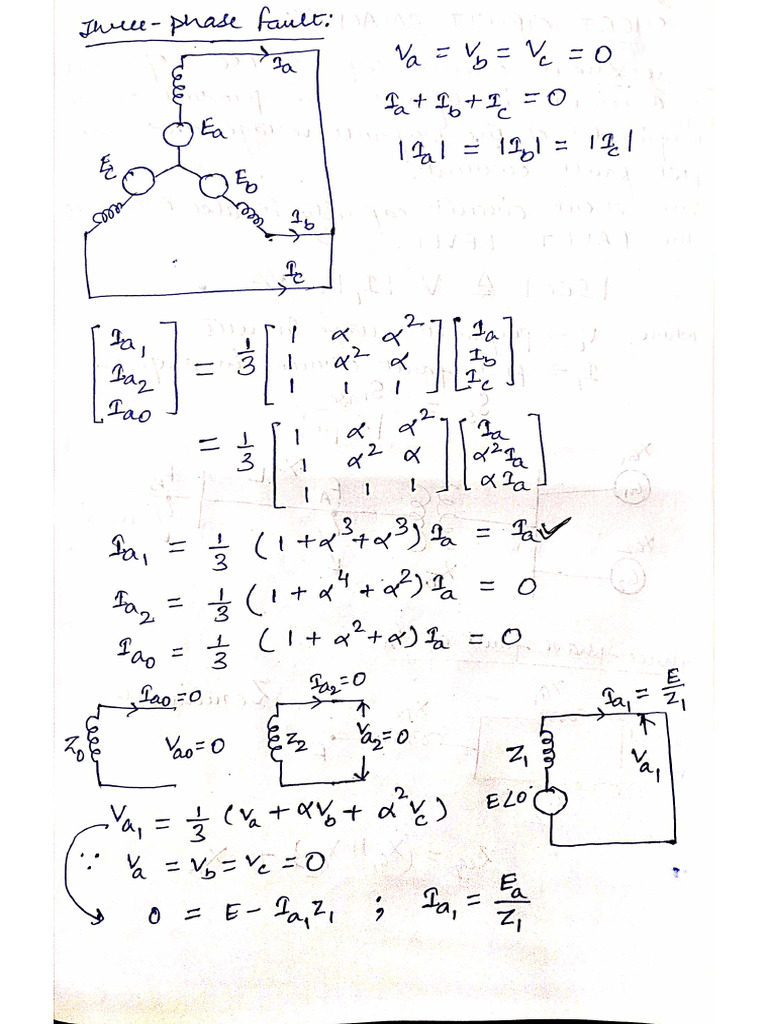 Three-phase fault:
Ia
Va = Vb = Vc = 0
Ia + Ib + Ic = 0
|Ia| = |Ib| = |Ic|
Ea
Ec
Eb
Ib
Ic
[Ia1 Ia2 Ia0] = 1/3 [1 α α²; 1 α² α; 1 1 1] [Ia Ib Ic]
= 1/3 [1 α α²; 1 α² α; 1 1 1] [Ia α²Ia αIa]
Ia1 = 1/3 (1 + α³ + α³) Ia = Ia ✓
Ia2 = 1/3 (1 + α⁴ + α²) Ia = 0
Ia0 = 1/3 (1 + α² + α) Ia = 0
Ia0 = 0
Z0
Va0 = 0
Ia2 = 0
Z2
Va2 = 0
Ia1 = E/Z1
Z1
Va1
E∠0
Va1 = 1/3 (Va + αVb + α²Vc)
∵ Va = Vb = Vc = 0
0 = E - Ia1 Z1 ; Ia1 = Ea/Z1